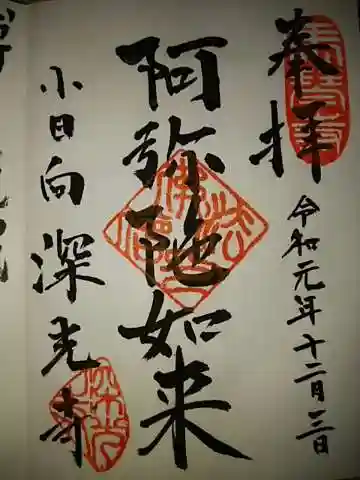 奉拝
令和元年十二月三日
阿弥陀如来
小日向深光寺